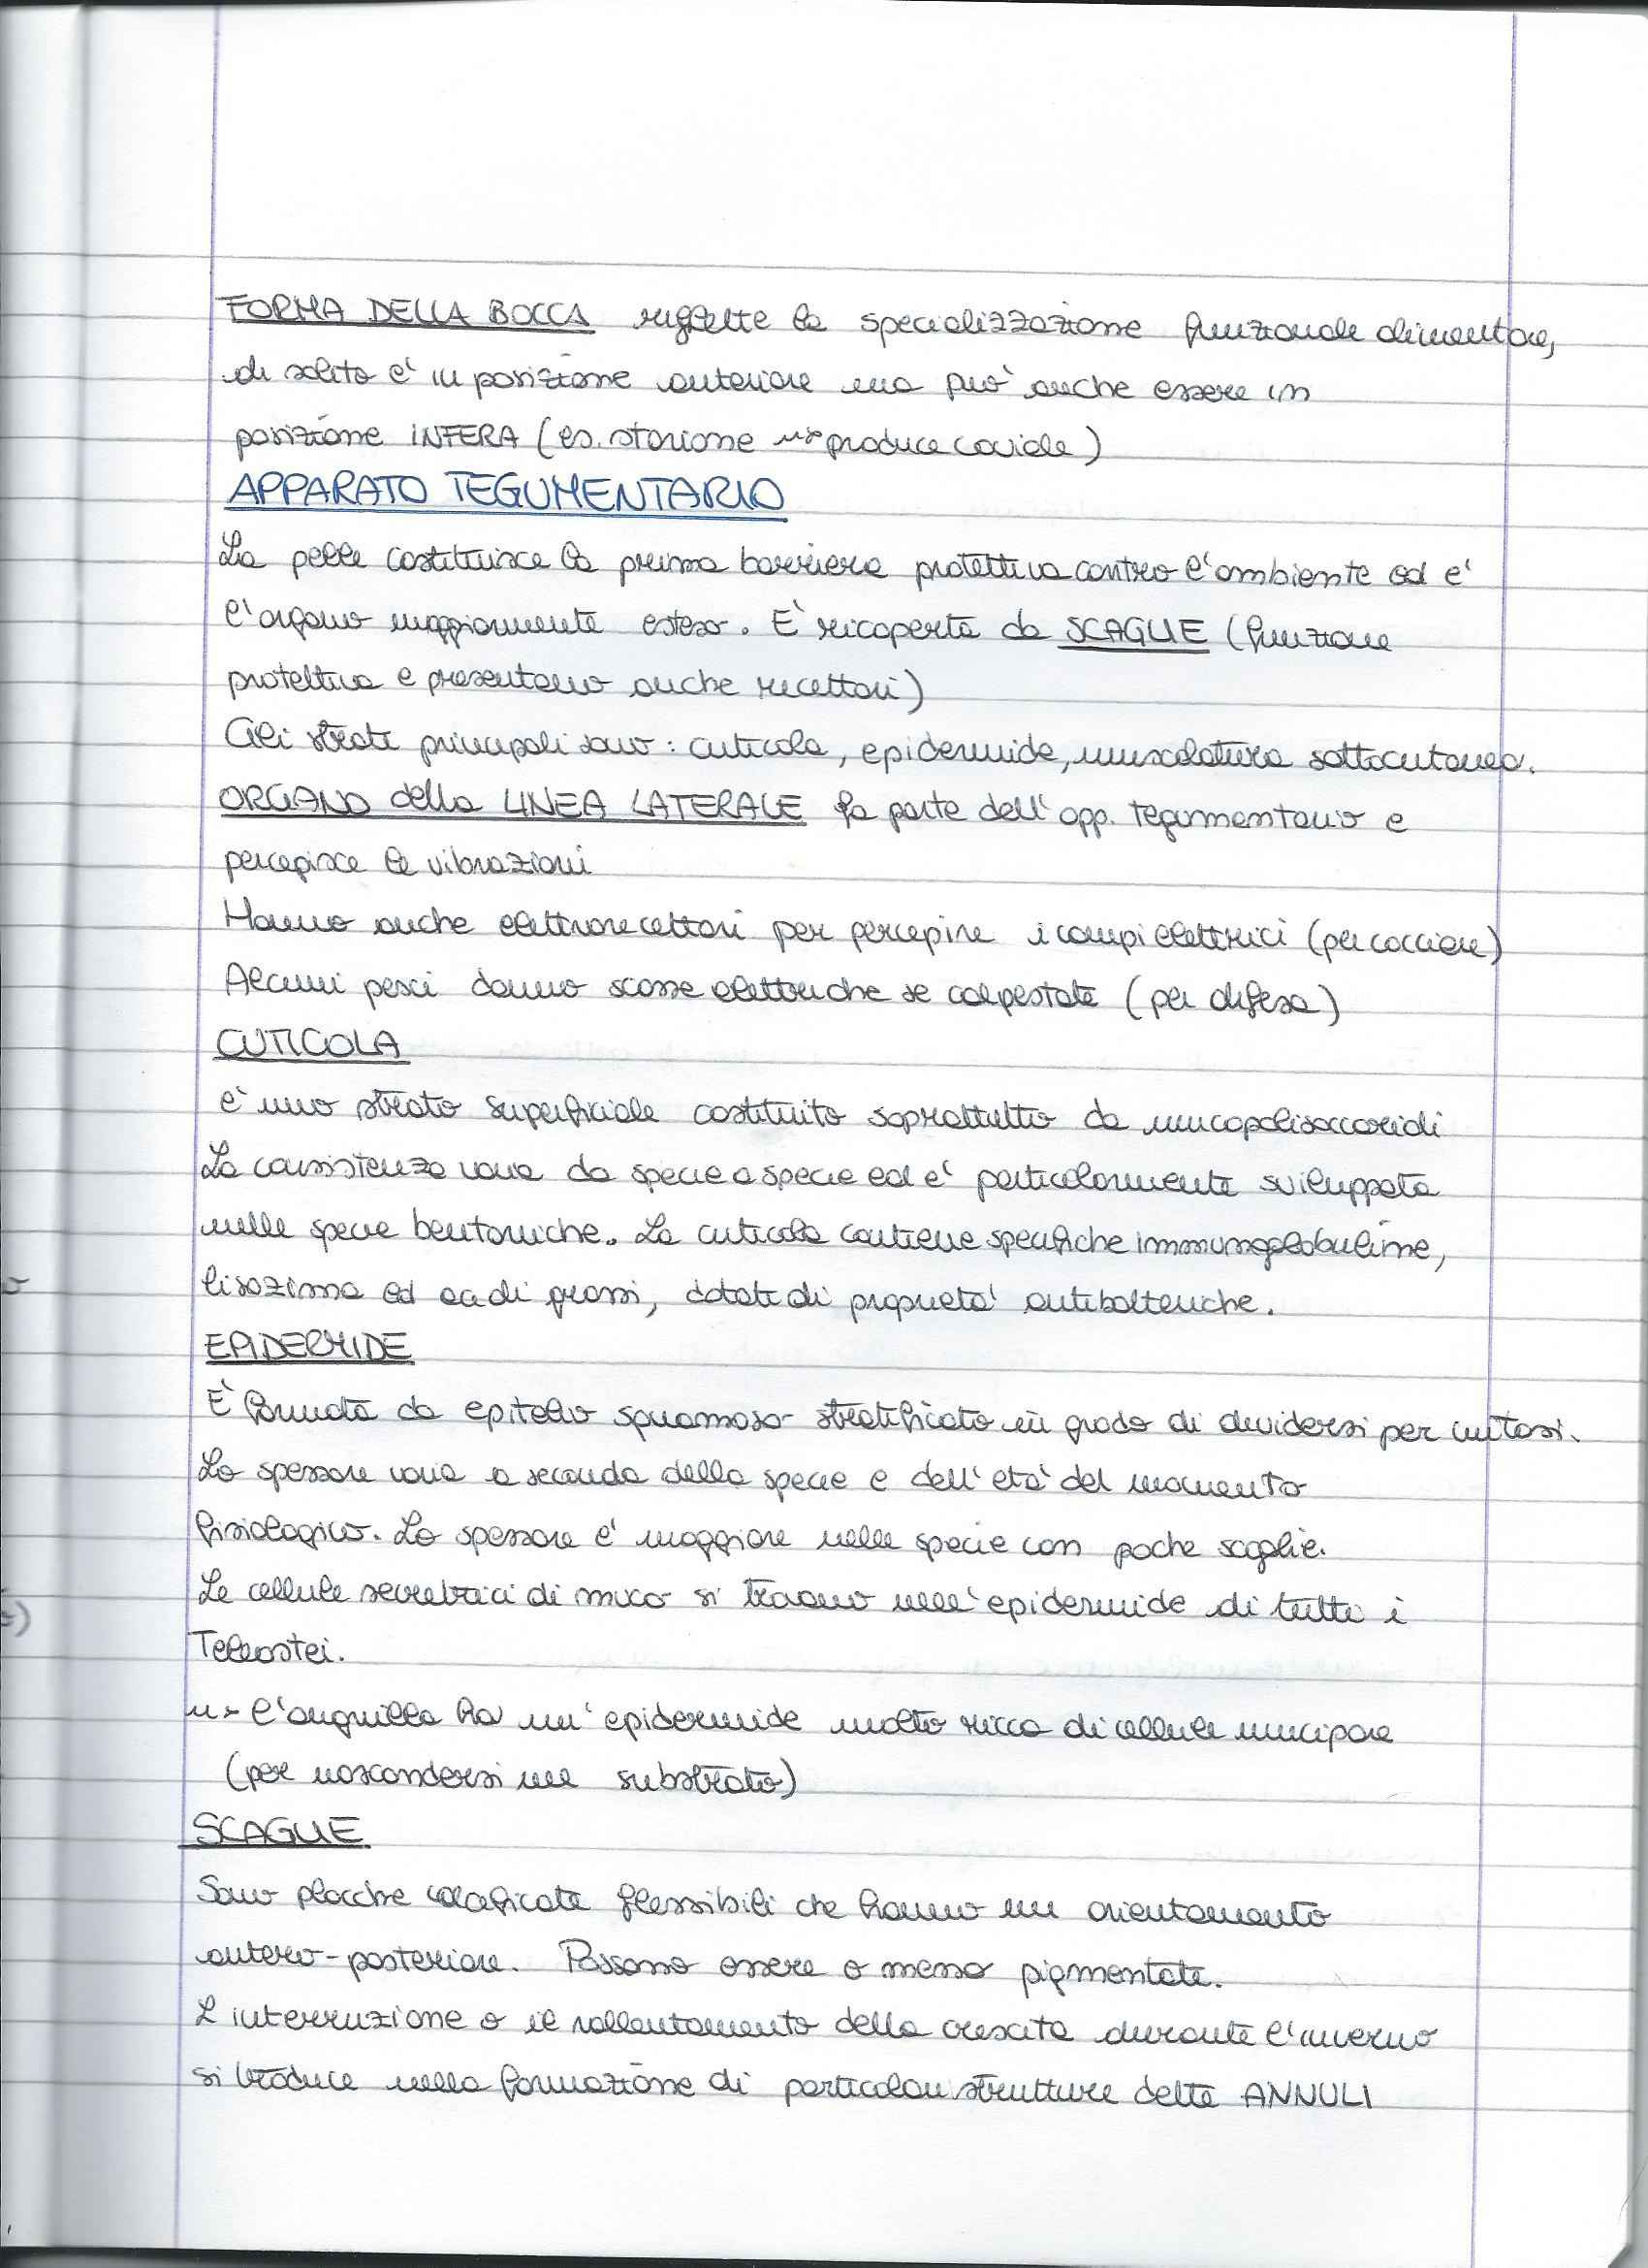 FORMA DELLA BOCCA riflette la specializzazione funzionale alimentare,
di solito e' in posizione anteriore ma può anche essere in
posizione INFERA (es. storione ~> produce caviale)
APPARATO TEGUMENTARIO
La pelle costituisce la prima barriera protettiva contro l'ambiente ed e'
l'organo maggiormente esteso. È ricoperta da SCAGLIE (funzione
protettiva e presentano anche recettori)
Gli strati principali sono: cuticola, epidermide, muscolatura sottocutanea.
ORGANO della LINEA LATERALE fa parte dell'app. tegumentario e
percepisce le vibrazioni
Hanno anche elettrorecettori per percepire i campi elettrici (per cacciare)
Alcuni pesci danno scosse elettriche se calpestate (per difesa)
CUTICOLA
e' uno strato superficiale costituito soprattutto da mucopolisaccaridi
La consistenza varia da specie a specie ed e' particolarmente sviluppata
nelle specie bentoniche. La cuticola contiene specifiche immunoglobuline,
lisozima ed acidi grassi, dotati di proprieta' antibatteriche.
EPIDERMIDE
È formata da epitelio squamoso stratificato in grado di dividersi per mitosi.
Lo spessore varia a seconda della specie e dell'eta' del momento
fisiologico. Lo spessore e' maggiore nelle specie con poche scaglie.
Le cellule secretrici di muco si trovano nell'epidermide di tutti i
Teleostei.
~> l'anguilla ha un'epidermide molto ricca di cellule mucipare
(per nascondersi nel substrato)
SCAGLIE
Sono placche calcificate flessibili che hanno un orientamento
antero-posteriore. Possono essere o meno pigmentate.
L'interruzione o il rallentamento della crescita durante l'inverno
si traduce nella formazione di particolari strutture dette ANNULI